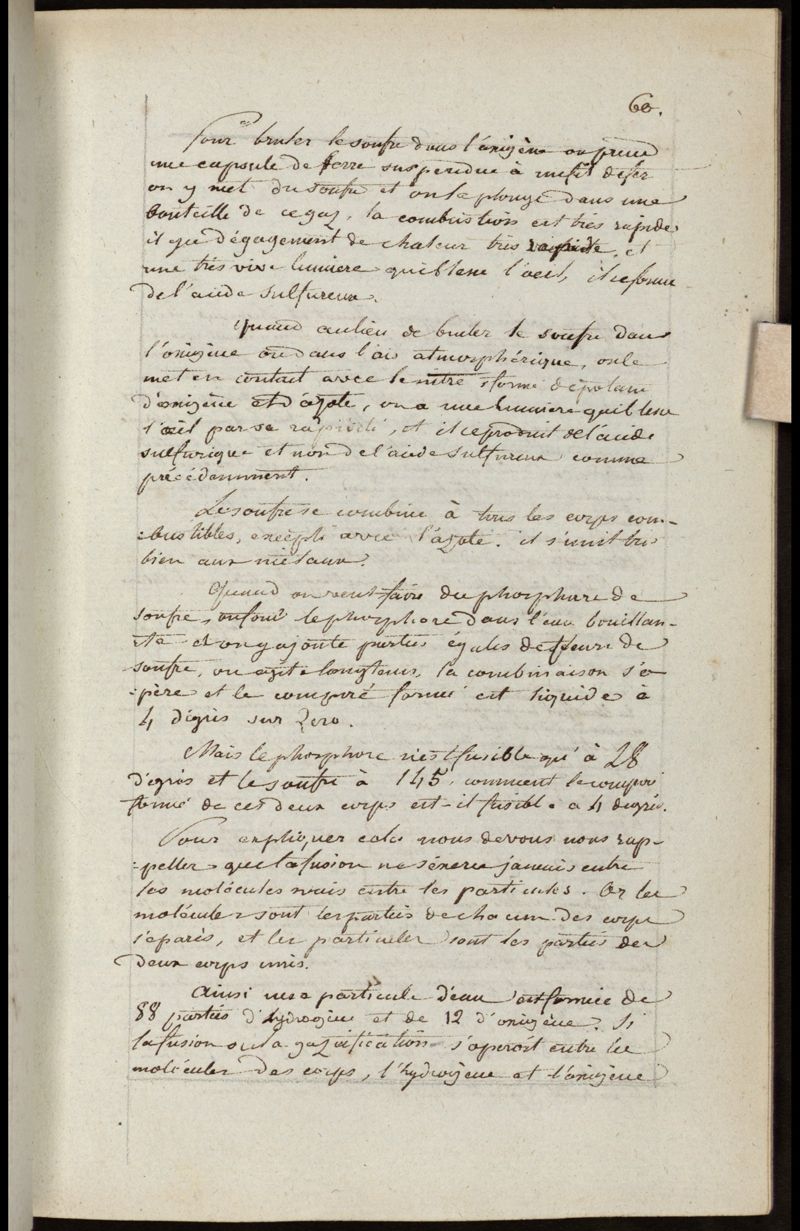 60.
Pour bruler le soufre dans l'oxigène on prend
une capsule de terre suspendue à un fil de fer
on y met du soufre et on le plonge dans une
bouteille de ce gaz, la combustion est très rapide
il y a dégagement de chaleur très rapide, et
une très vive lumiere qui blesse l'oeil, il se forme
de l'acide sulfureux.
Quand au lieu de bruler le soufre dans
l'oxigène ou dans l'air atmosphérique, on le
met en contact avec le nitre formé de potasse
d'oxigène et d'azote, on a une lumiere qui blesse
l'œil par sa rapidité, et il se produit de l'acide
sulfurique et non de l'acide sulfureux comme
précédemment.
Le soufre se combine à tous les corps com-
-bustibles, excepté avec l'azote. il s'unit très
bien aux métaux.
Quand on veut faire du phosphure de
soufre, on fond le phosphore dans l'eau bouillan-
-te et on y ajoute parties égales de fleurs de
soufre, on agite longtems, la combinaison s'o-
-père et le composé formé est liquide à
4 dégrés sur zero.
Mais le phosphore n'est fusible qu'à 28
dégrés et le soufre à 145, comment le composé
formé de ces deux corps est-il fusible à 4 degrés.
Pour expliquer cela nous devons nous rap-
-peller que la fusion ne s'exerce jamais entre
les molécules mais entre les particules. Or les
molécules sont les parties de chacun des corps
séparés, et les particules sont les parties des
deux corps unis.
Ainsi une particule d'eau est formée de
88 parties d'hydrogène et de 12 d'oxigène. Si
la fusion ou la gazéification s'operoit entre les
molécules des corps, l'hydrogène et l'oxigène